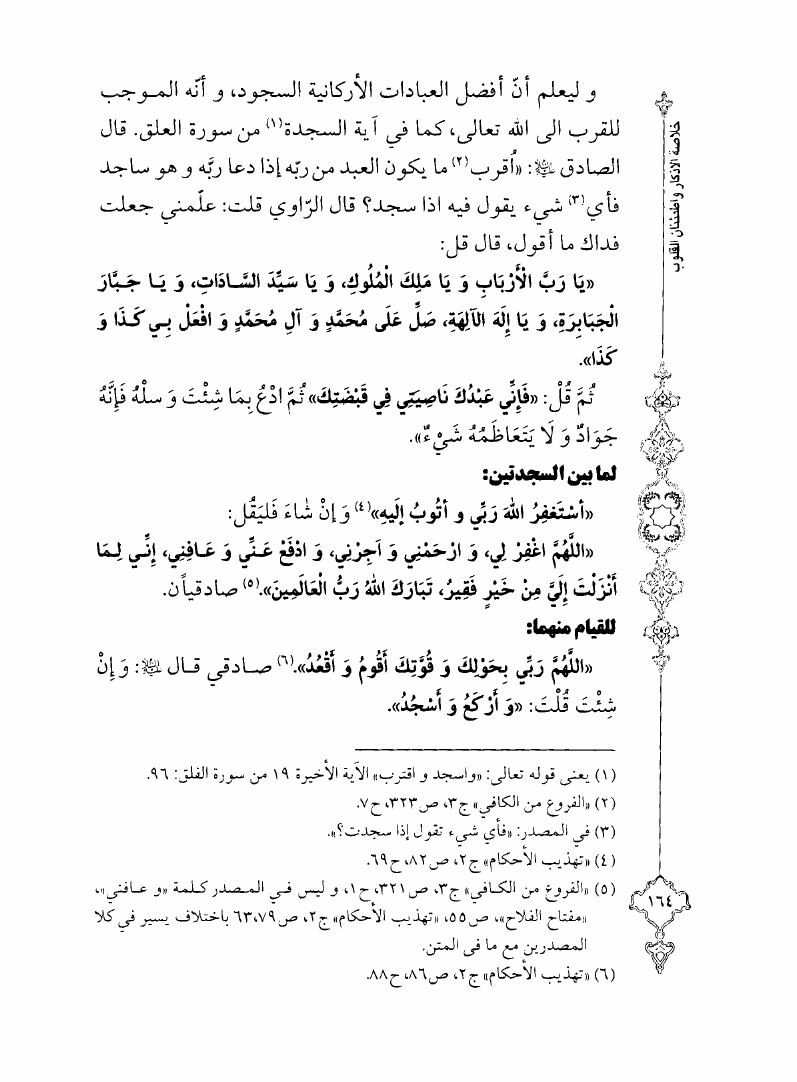 و ليعلم أنّ أفضل العبادات الأركانية السجود، و أنّه الموجب
للقرب الى الله تعالى، كما في آية السجدة(١) من سورة العلق. قال
الصادق ﷷ: «أقرب(٢) ما يكون العبد من ربّه إذا دعا ربَّه و هو ساجد
فأي(٣) شيء يقول فيه اذا سجد؟ قال الرّاوي قلت: علّمني جعلت
فداك ما أقول، قال قل:
«يَا رَبَّ الْأَرْبَابِ وَ يَا مَلِكَ الْمُلُوكِ، وَ يَا سَيِّدَ السَّادَاتِ، وَ يَا جَبَّارَ
الْجَبَابِرَةِ، وَ يَا إِلَهَ الآلِهَةِ، صَلِّ عَلَى مُحَمَّدٍ وَ آلِ مُحَمَّدٍ وَ افْعَلْ بِي كَذَا وَ
كَذَا».
ثُمَّ قُلْ: «فَإِنِّي عَبْدُكَ نَاصِيَتِي فِي قَبْضَتِكَ» ثُمَّ ادْعُ بِمَا شِئْتَ وَ سلْهُ فَإِنَّهُ
جَوَادٌ وَ لَا يَتَعَاظَمُهُ شَيْءٌ».
لما بين السجدتين:
«أسْتَغفِرُ اللهَ رَبِّي و أتُوبُ إلَيهِ»(٤) وَ إنْ شَاءَ فَليَقُل:
«اللَّهُمَّ اغْفِرْ لِي، وَ ارْحَمْنِي وَ آجِرْنِي، وَ ادْفَعْ عَنِّي وَ عَافِنِي، إِنِّي لِمَا
أَنْزَلْتَ إِلَيَّ مِنْ خَيْرٍ فَقِيرٌ، تَبَارَكَ اللهُ رَبُّ الْعَالَمِينَ».(٥) صادقياًن.
للقيام منهما:
«اللَّهُمَّ رَبِّي بِحَوْلِكَ وَ قُوَّتِكَ أَقُومُ وَ أَقْعُدُ».(٦) صادقي قال ﷷ: وَ إِنْ
شِئْتَ قُلْتَ: «وَ أَرْكَعُ وَ أَسْجُدُ».
(١) يعنى قوله تعالى: «واسجد و اقترب» الآية الأخيرة ١٩ من سورة الفلق: ٩٦.
(٢) «الفروع من الكافي» ج٣، ص٣٢٣، ح٧.
(٣) في المصدر: «فأي شيء تقول إذا سجدت؟».
(٤) «تهذيب الأحكام» ج٢، ص٨٢، ح٦٩.
(٥) «الفروع من الكافي» ج٣، ص٣٢١، ح١، و ليس في المصدر كلمة «و عافني»،
«مفتاح الفلاح»، ص٥٥، «تهذيب الأحكام» ج٢، ص٦٣،٧٩ باختلاف يسير في كلا
المصدرين مع ما في المتن.
(٦) «تهذيب الأحكام» ج٢، ص٨٦، ح٨٨.
خلاصة الاذكار واطمئنان القلوب
١٦٤